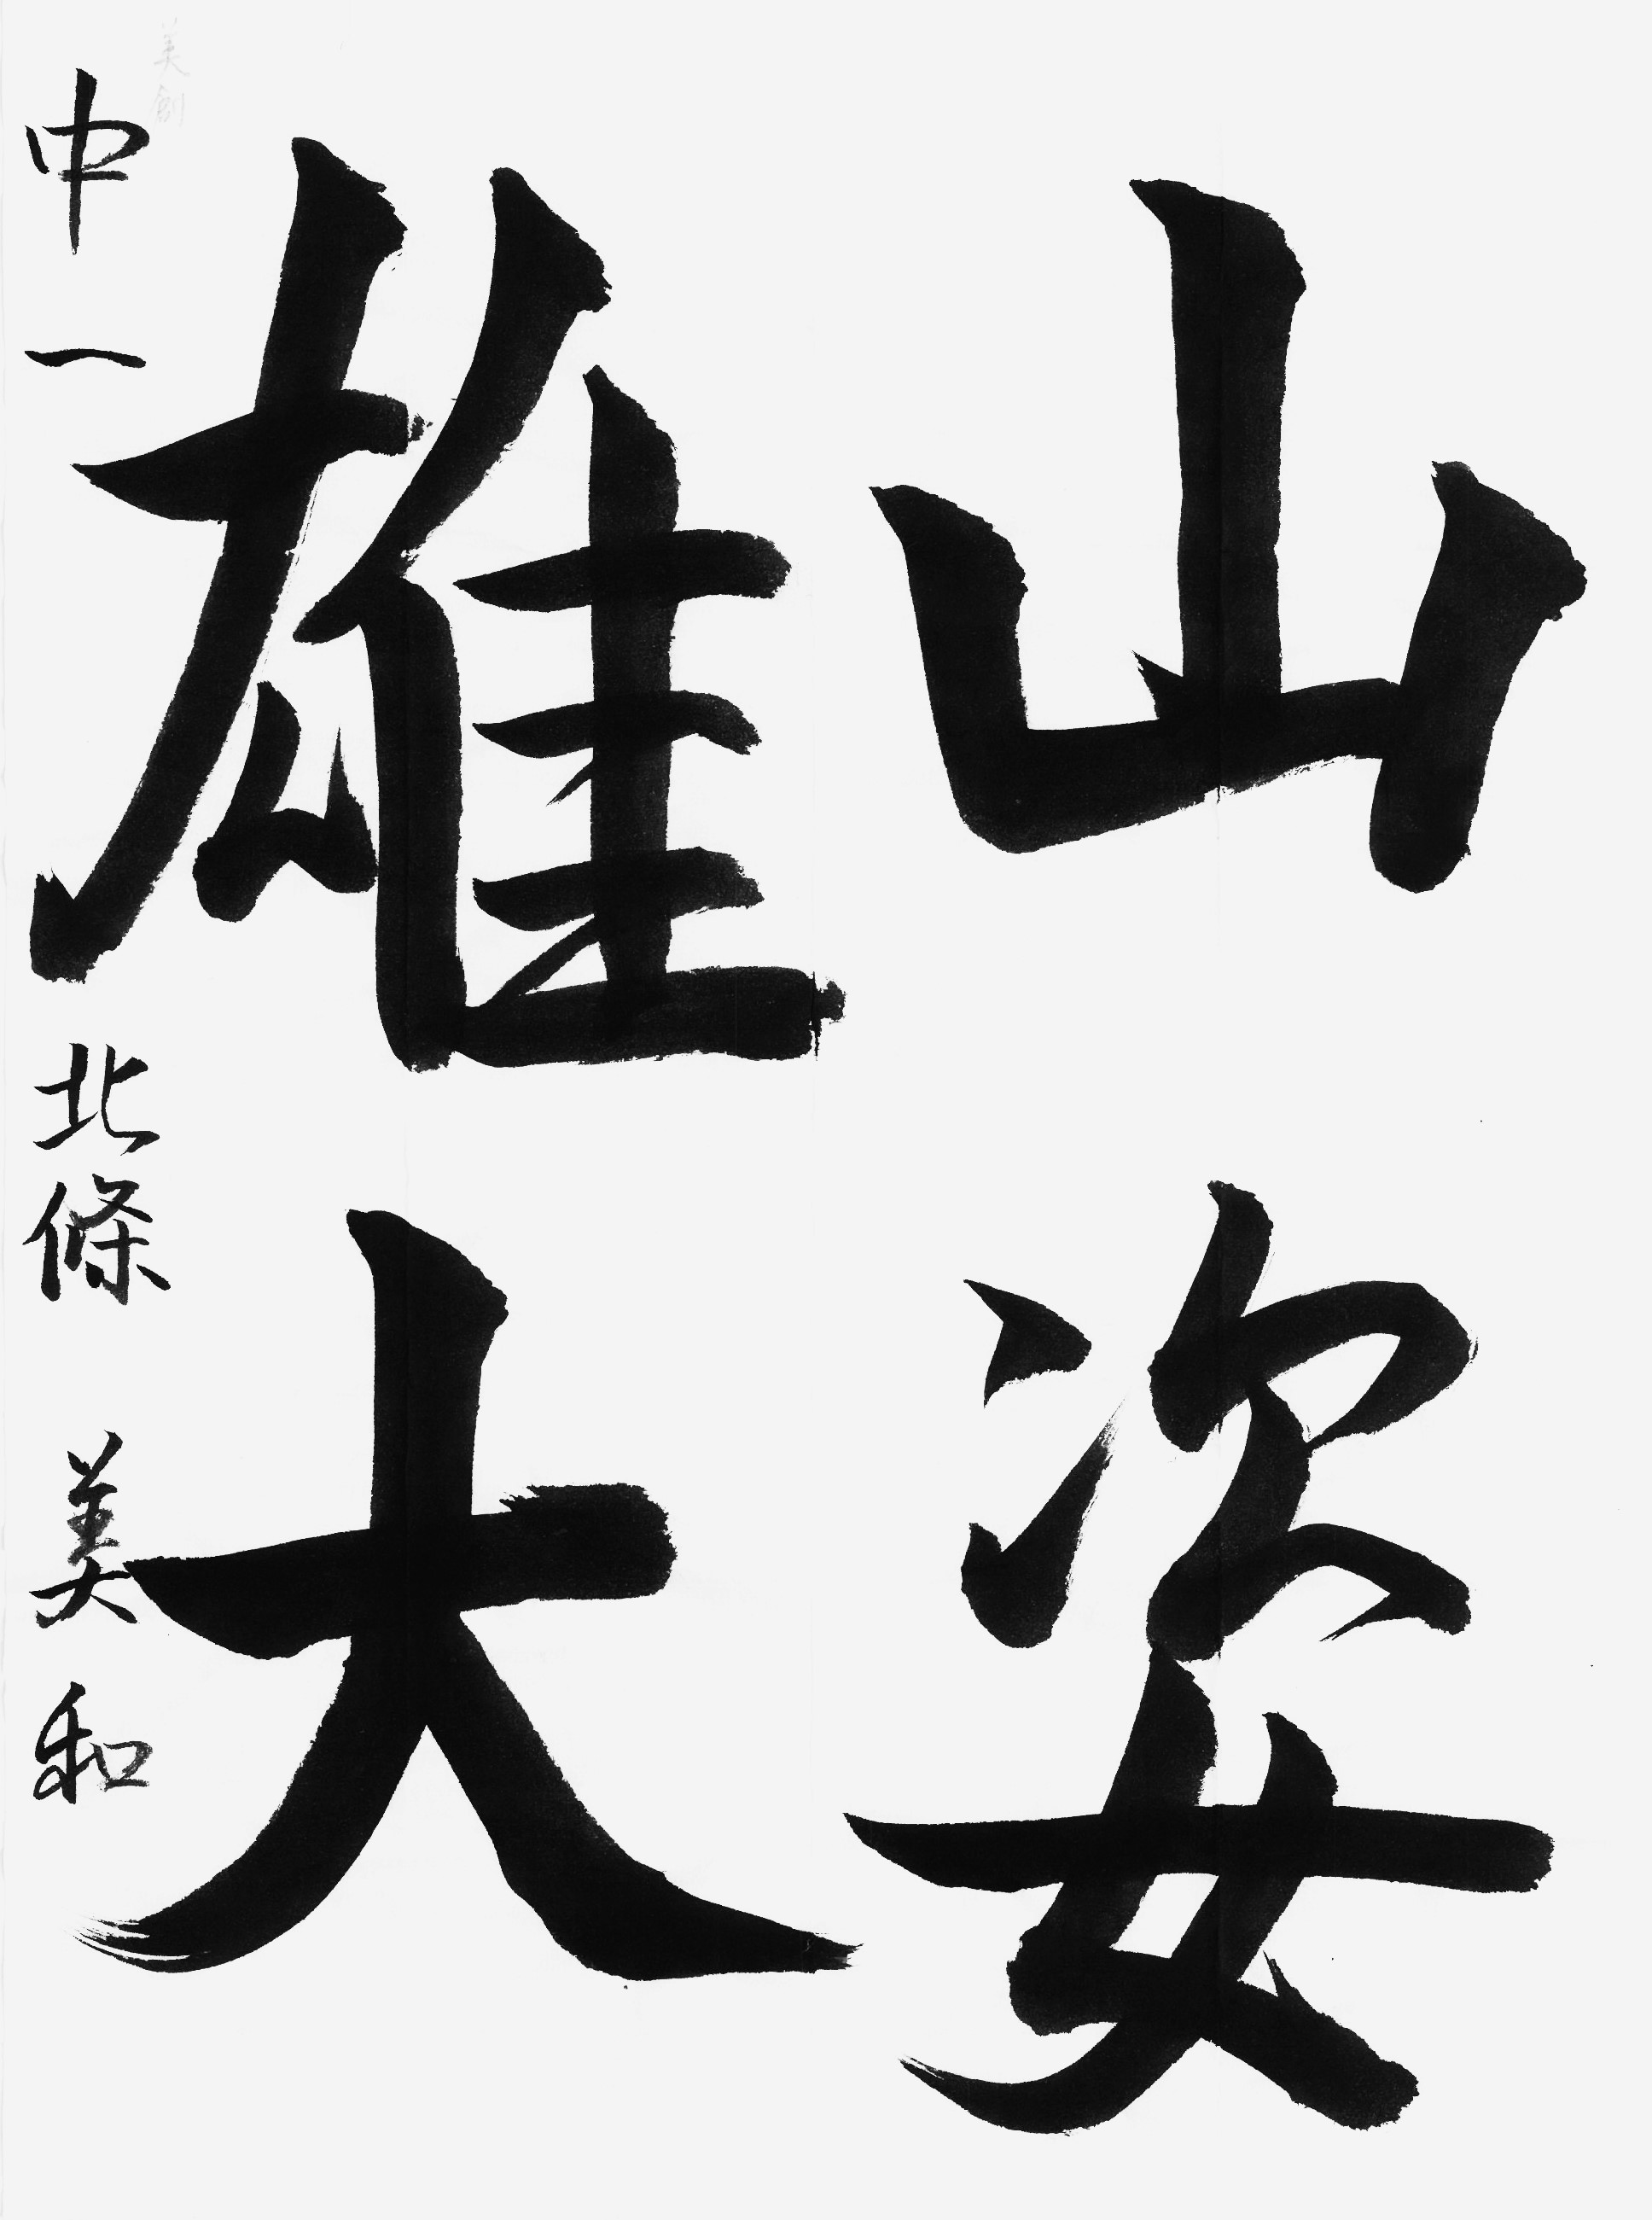 山姿
雄大
中一 北條 美和
美創